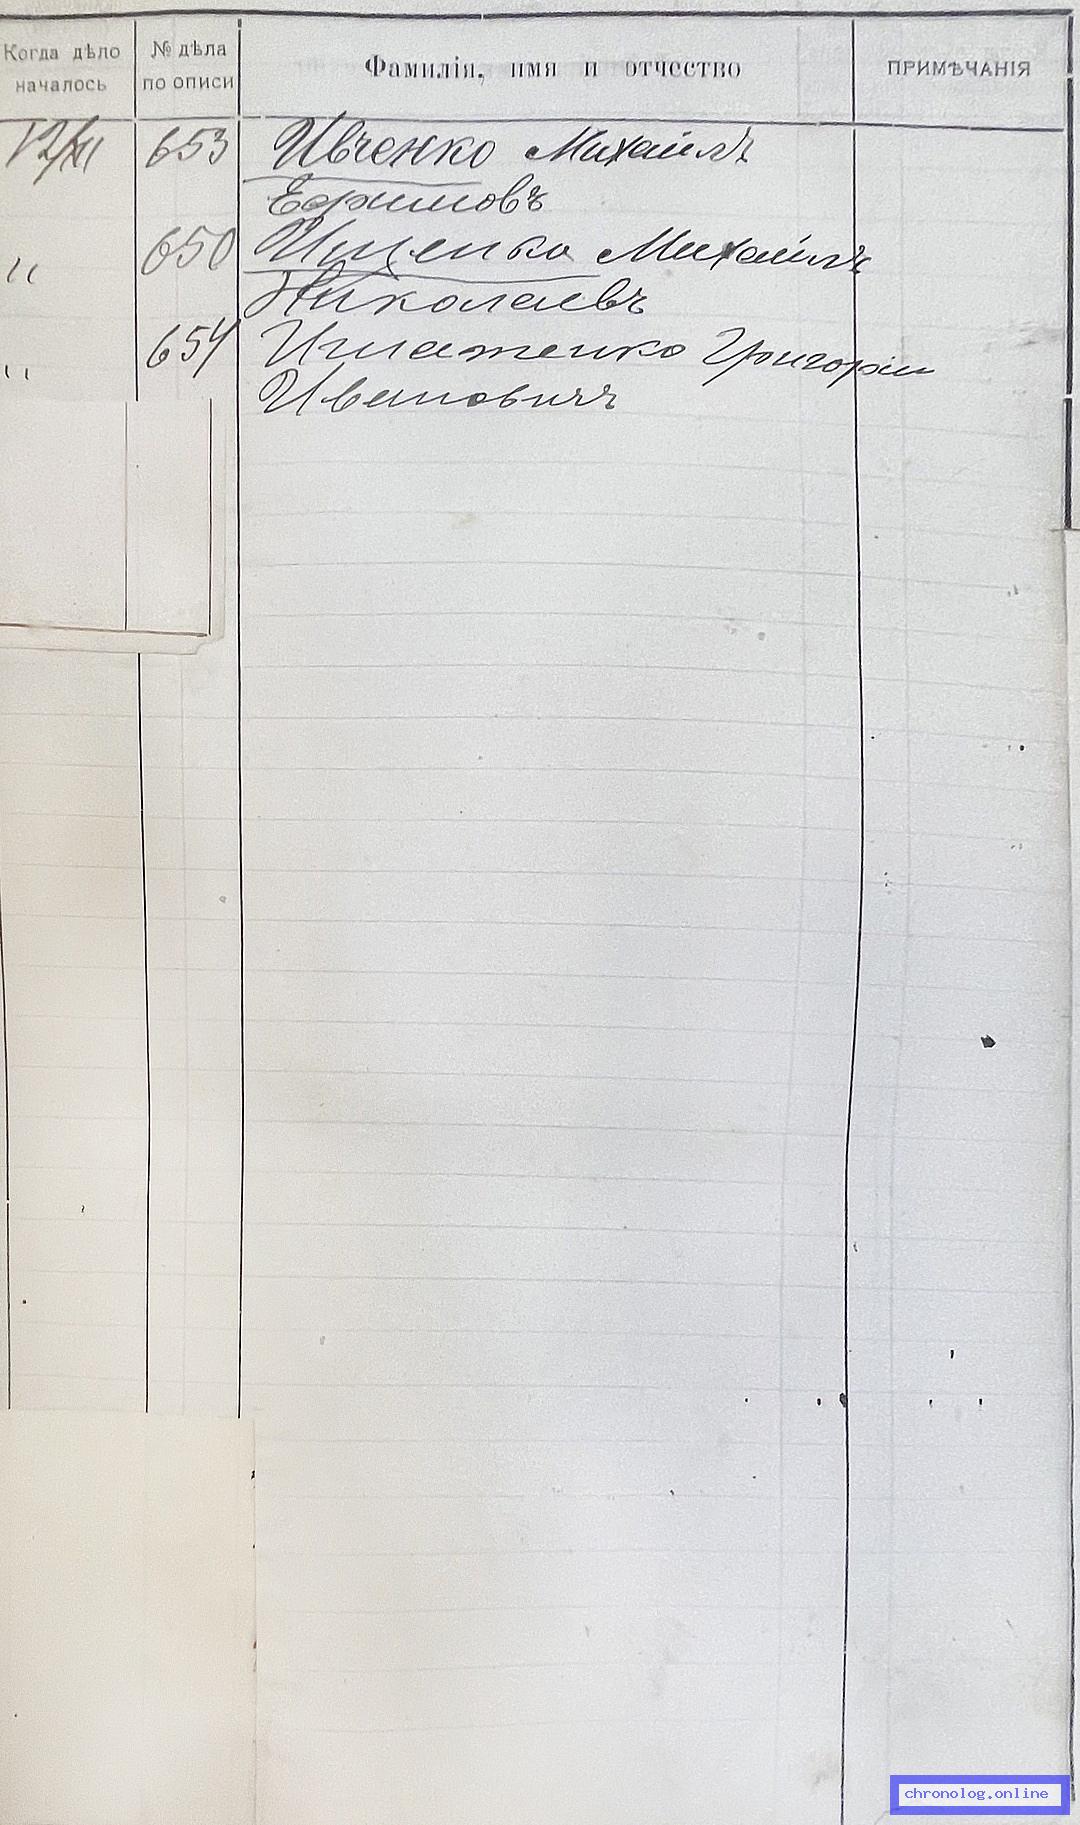 Когда дѣло началось
№ дѣла по описи
Фамилія, имя и отчество
ПРИМѢЧАНІЯ
12/XII 653 Ивченко Михаилъ
Ефимовъ
" 650 Ищенко Михаилъ
Николаевъ
" 654 Игнатенко Григорій
Ивановичъ
chronolog.online